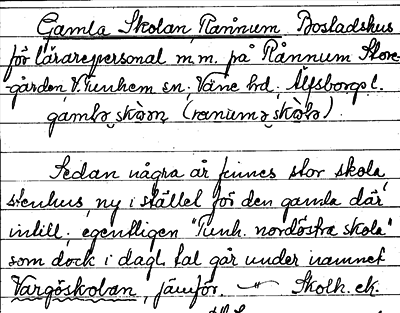 Gamla Skolan, Rånnum Bostadshus
för lärarepersonal m.m. på Rånnum Store-
gården V. Tunhem sn. Väne hd. Älfsborgs l.
Sedan några år finnes stor skola,
stenhus, ny i stället för den gamla där
intill; egentligen "Tunh. nordöstra skola"
som dock i dagl. tal går under namnet
Vargöskolan, jämför. — " — Skolh. ek.